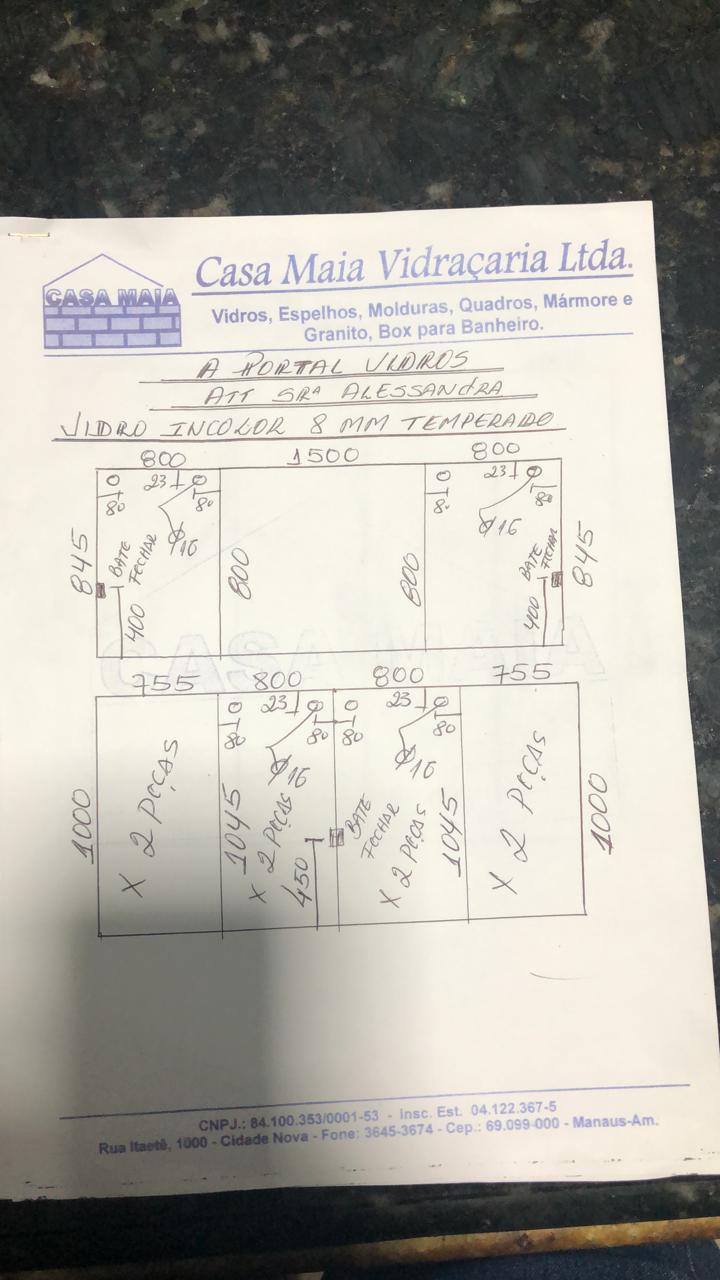 CASA MAIA
Casa Maia Vidraçaria Ltda.
Vidros, Espelhos, Molduras, Quadros, Mármore e
Granito, Box para Banheiro.
A PORTAL VIDROS
ATT SRª ALESSANDRA
VIDRO INCOLOR 8 MM TEMPERADO
800 1500 800
23 23
80 80 80 80
16 16
845 BATE FECHAR 800 800 BATE FECHAR 845
400 400
755 800 800 755
23 23
80 80 80 80
16 16
1000 X 2 PEÇAS 1045 X 2 PEÇAS BATE FECHAR X 2 PEÇAS 1045 X 2 PEÇAS 1000
450
CNPJ.: 84.100.353/0001-53 - Insc. Est. 04.122.367-5
Rua Itaetê, 1000 - Cidade Nova - Fone: 3645-3674 - Cep.: 69.099-000 - Manaus-Am.